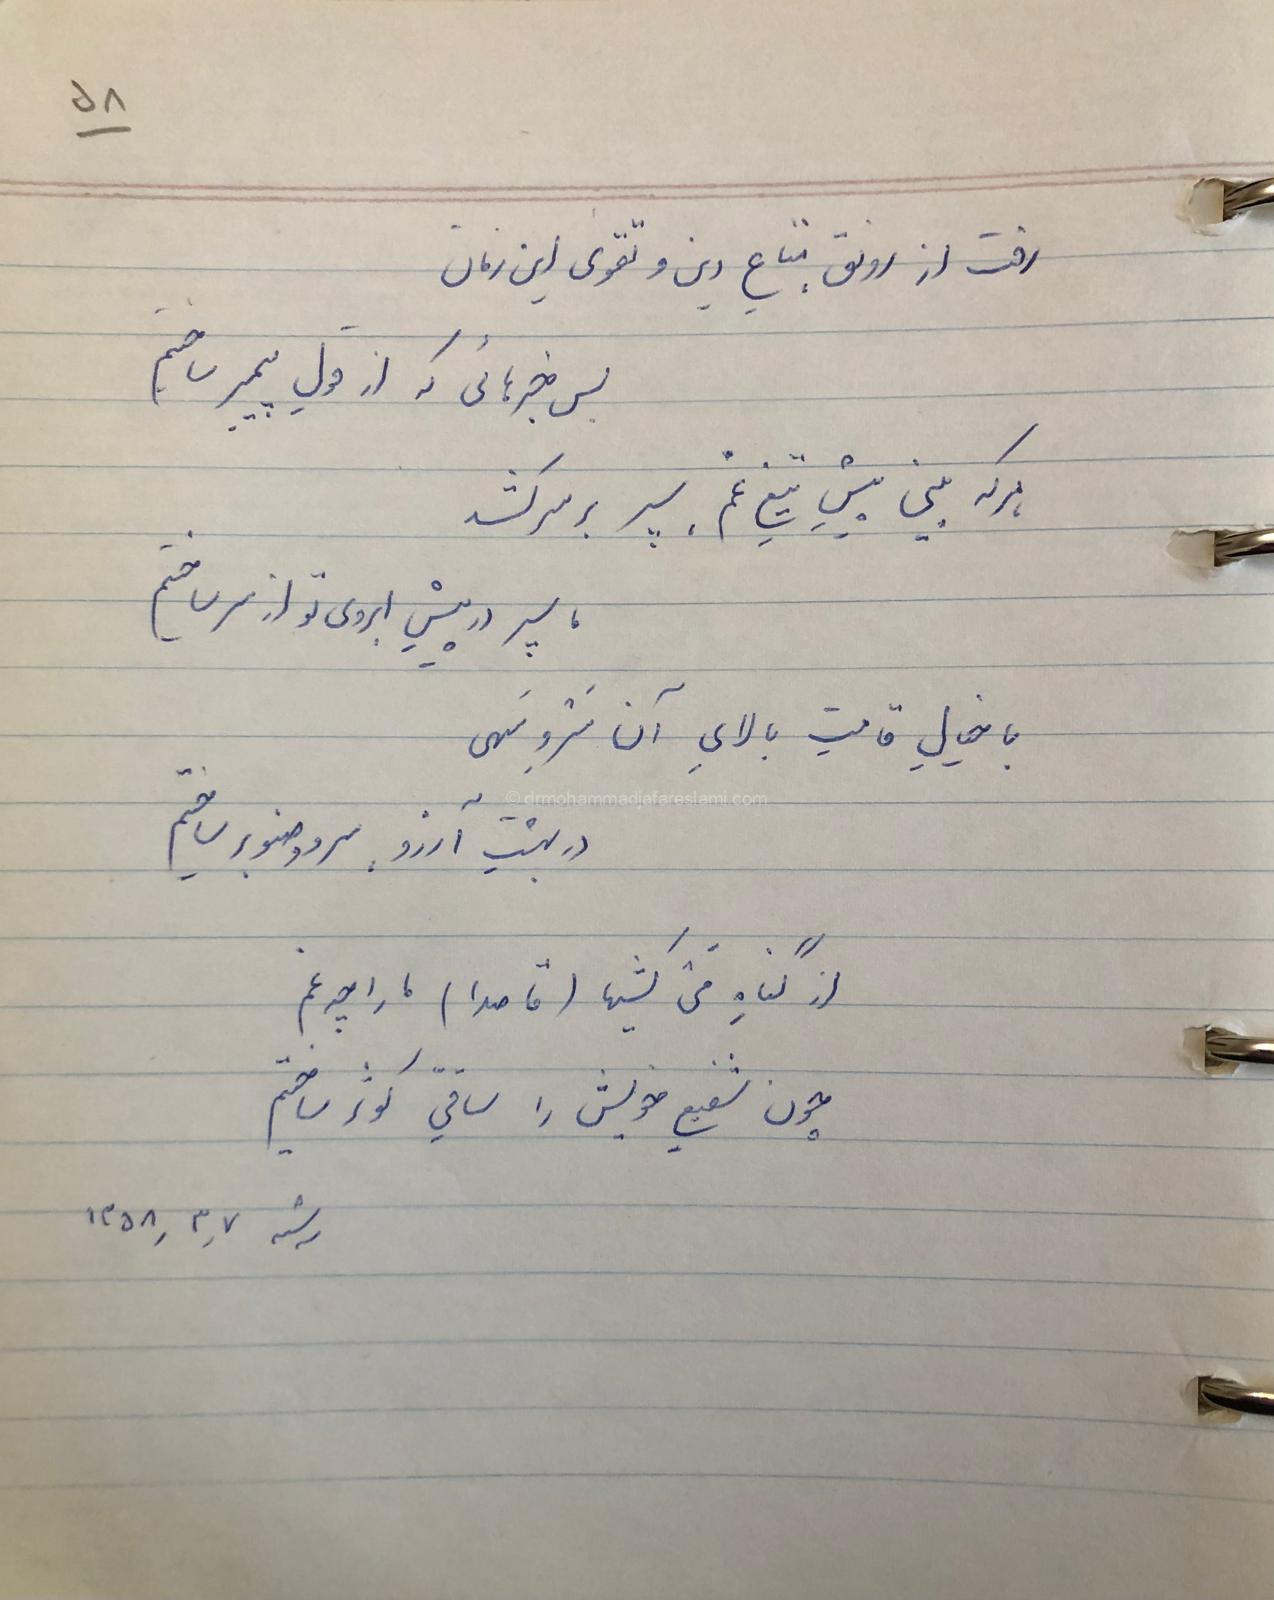 ۵۸
رفت از رونق متاعِ دین و تقوی این زمان
بس خبرهائی که از قولِ پیمبر ساختیم
هرکه بینی پیشِ تیغِ غم، سپر بر سر کشد
ما سپر در پیشِ ابروی تو از سر ساختیم
با خیالِ قامتِ بالایِ آن سَروِ سَهی
در بهشتِ آرزو، سرو و صنوبر ساختیم
از گناهِ می کشیها (قاصدا) ما را چه غم
چون شفیعِ خویش را ساقیِ کوثر ساختیم
رشت ۱۳۵۸٫۳٫۷
© drmohammadjafareslami.com